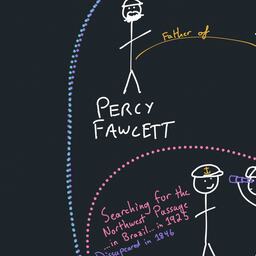 Father of
PERCY
FAWCETT
Searching for the
Northwest Passage
...in Brazil...in 1925
Disappeared in 1846